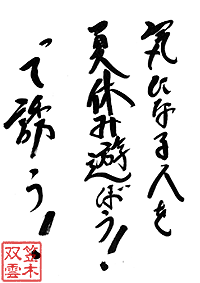 気になる人を
夏休み遊ぼう!
って誘う!
笠木
双雲